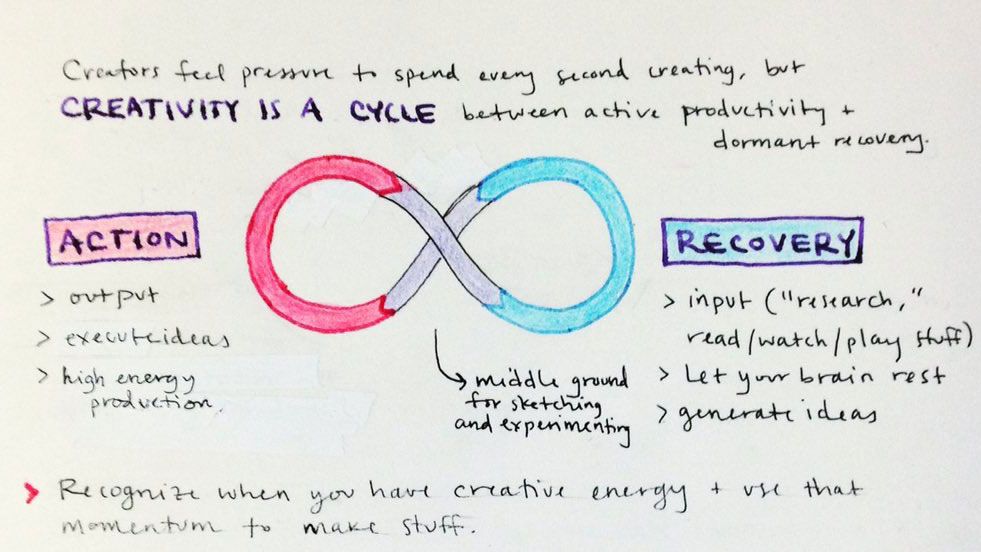 Creators feel pressure to spend every second creating, but
CREATIVITY IS A CYCLE between active productivity +
dormant recovery.
ACTION
> output
> execute ideas
> high energy
production.
middle ground
for sketching
and experimenting
RECOVERY
> input ("research,"
read/watch/play stuff)
> Let your brain rest
> generate ideas
> Recognize when you have creative energy + use that
momentum to make stuff.